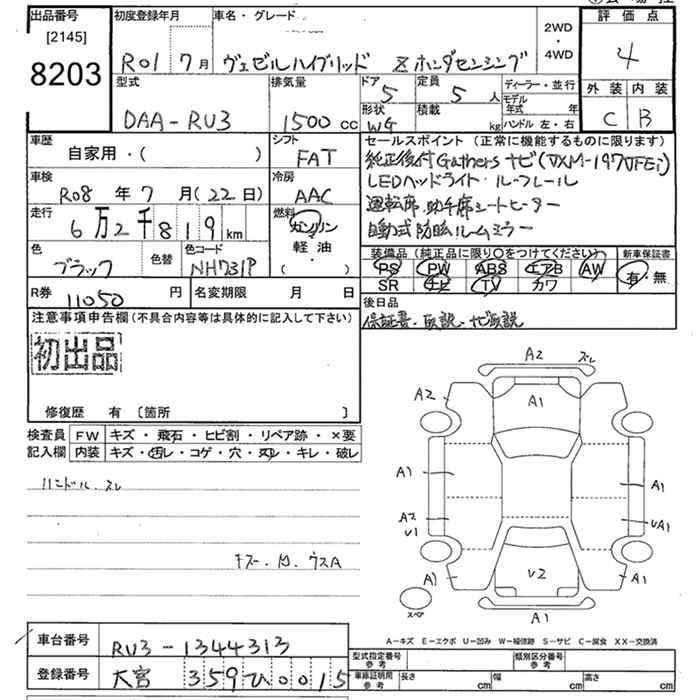 出品番号 初度登録年月 車名・グレード 2WD・4WD 評価点
[2145]
8203 R01 7月 ヴェゼルハイブリッド Z ホンダセンシング 4
型式 排気量 ドア 定員 ディーラー・並行 外装 内装
DAA-RU3 1500cc 5 5人 モデル年式 年 C B
形状 積載 ハンドル 左・右
WG kg
車歴 シフト セールスポイント(正常に機能するものに限ります)
自家用・( ) FAT 純正後付Gathersナビ(VXM-197VFEi)
車検 冷房 LEDヘッドライト・ルーフレール
R08年7月(22日) AAC 運転席、助手席シートヒーター
走行 燃料 自動式防眩ルームミラー
6万2千819km ガソリン
軽油・( )
色 色替 色コード 装備品(純正品に限り○をつけてください) 新車保証書
ブラック NH731P PS PW ABS エアB AW 有・無
SR ナビ TV カワ
R券 11050円 名変期限 月 日 後日品
保証書・取説・ナビ取説
注意事項申告欄(不具合内容等は具体的に記入して下さい)
初出品
修復歴 有 [箇所 ]
検査員 FW キズ・飛石・ヒビ割・リペア跡・×要
記入欄 内装 キズ・汚レ・コゲ・穴・スレ・キレ・破レ
ハンドル スレ
キズ・凹・ウスA
A2 スレ
A2 A1
A1 A1
A2 U1 UA1
A1 U2 A1
スペア A1
A-キズ E-エクボ U-凹み W-補修跡 S-サビ C-腐食 XX-交換済
車台番号 RU3-1344313
型式指定番号 参考 類別区分番号 参考
登録番号 大宮 359 ひ 0015
車庫証明用 参考 長さ cm 幅 cm 高さ cm